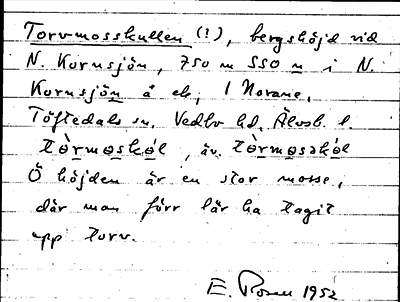 Torvmosskullen (!), bergshöjd vid
N. Kornsjön, 750 m SSO n i N.
Kornsjön å ek; 1 Norane,
Töftedals sn. Vedbo hd, Älvsb. l.
tòrmoskól, äv. tòrmosskól
Ö höjden är en stor mosse,
där man förr lär ha tagit
upp torv.
E. Rosen 1952